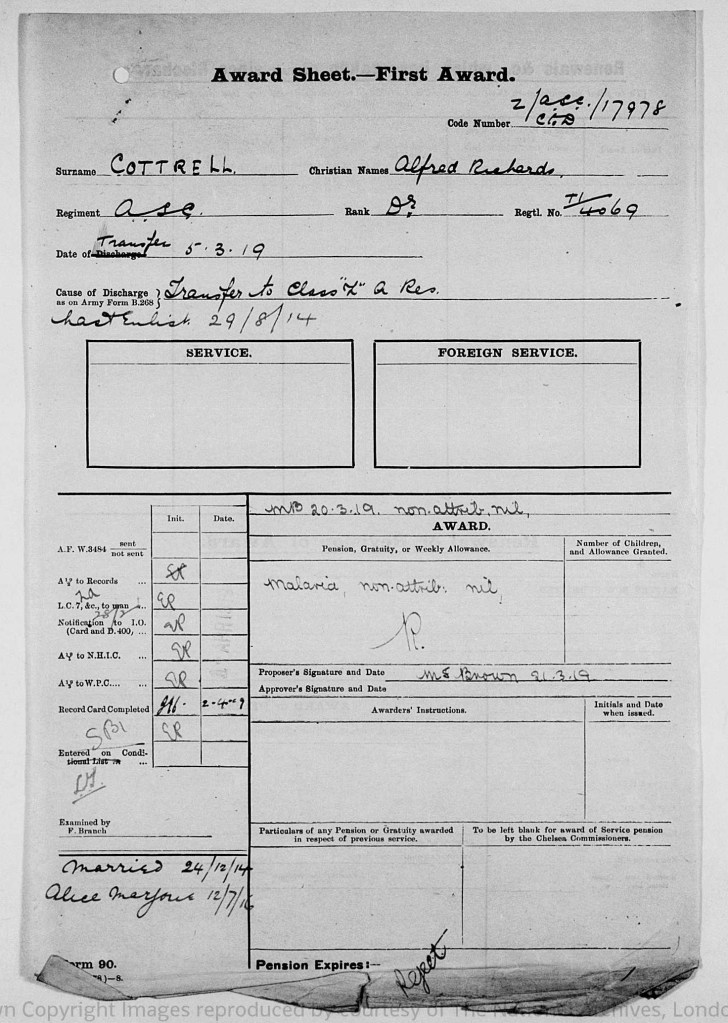 Award Sheet.—First Award.
Code Number 2/ASC/17978
Surname COTTRELL. Christian Names Alfred Richards.
Regiment ASC. Rank Dr. Regtl. No. T1/4069
Transfer
Date of Discharge 5.3.19
Cause of Discharge as on Army Form B.268 } Transfer to Class "Z" A Res.
Last Enlist. 29/8/14
SERVICE. FOREIGN SERVICE.
MB 20.3.19. non.attrib, nil,
Init. Date. AWARD.
A.F. W.3484 sent / not sent
Pension, Gratuity, or Weekly Allowance. Number of Children, and Allowance Granted.
A/ to Records ...
Malaria, non-attrib: nil,
L.C. 7, &c., to man ...
28/2
Notification to I.O.
(Card and B.400) ...
A/ to N.H.I.C. ...
A/ to W.P.C. ...
Proposer's Signature and Date MS Brown 21.3.19
Approver's Signature and Date
Record Card Completed 2-4-19
Awarders' Instructions. Initials and Date when issued.
SB1
Entered on Condi-
tional List ...
Examined by
F. Branch
Particulars of any Pension or Gratuity awarded in respect of previous service. To be left blank for award of Service pension by the Chelsea Commissioners.
Married 24/12/14
Alice Marjorie 12/7/16
orm 90.
)—8.
Pension Expires:—
Reject
n Copyright Images reproduced by courtesy of The National Archives, Londo